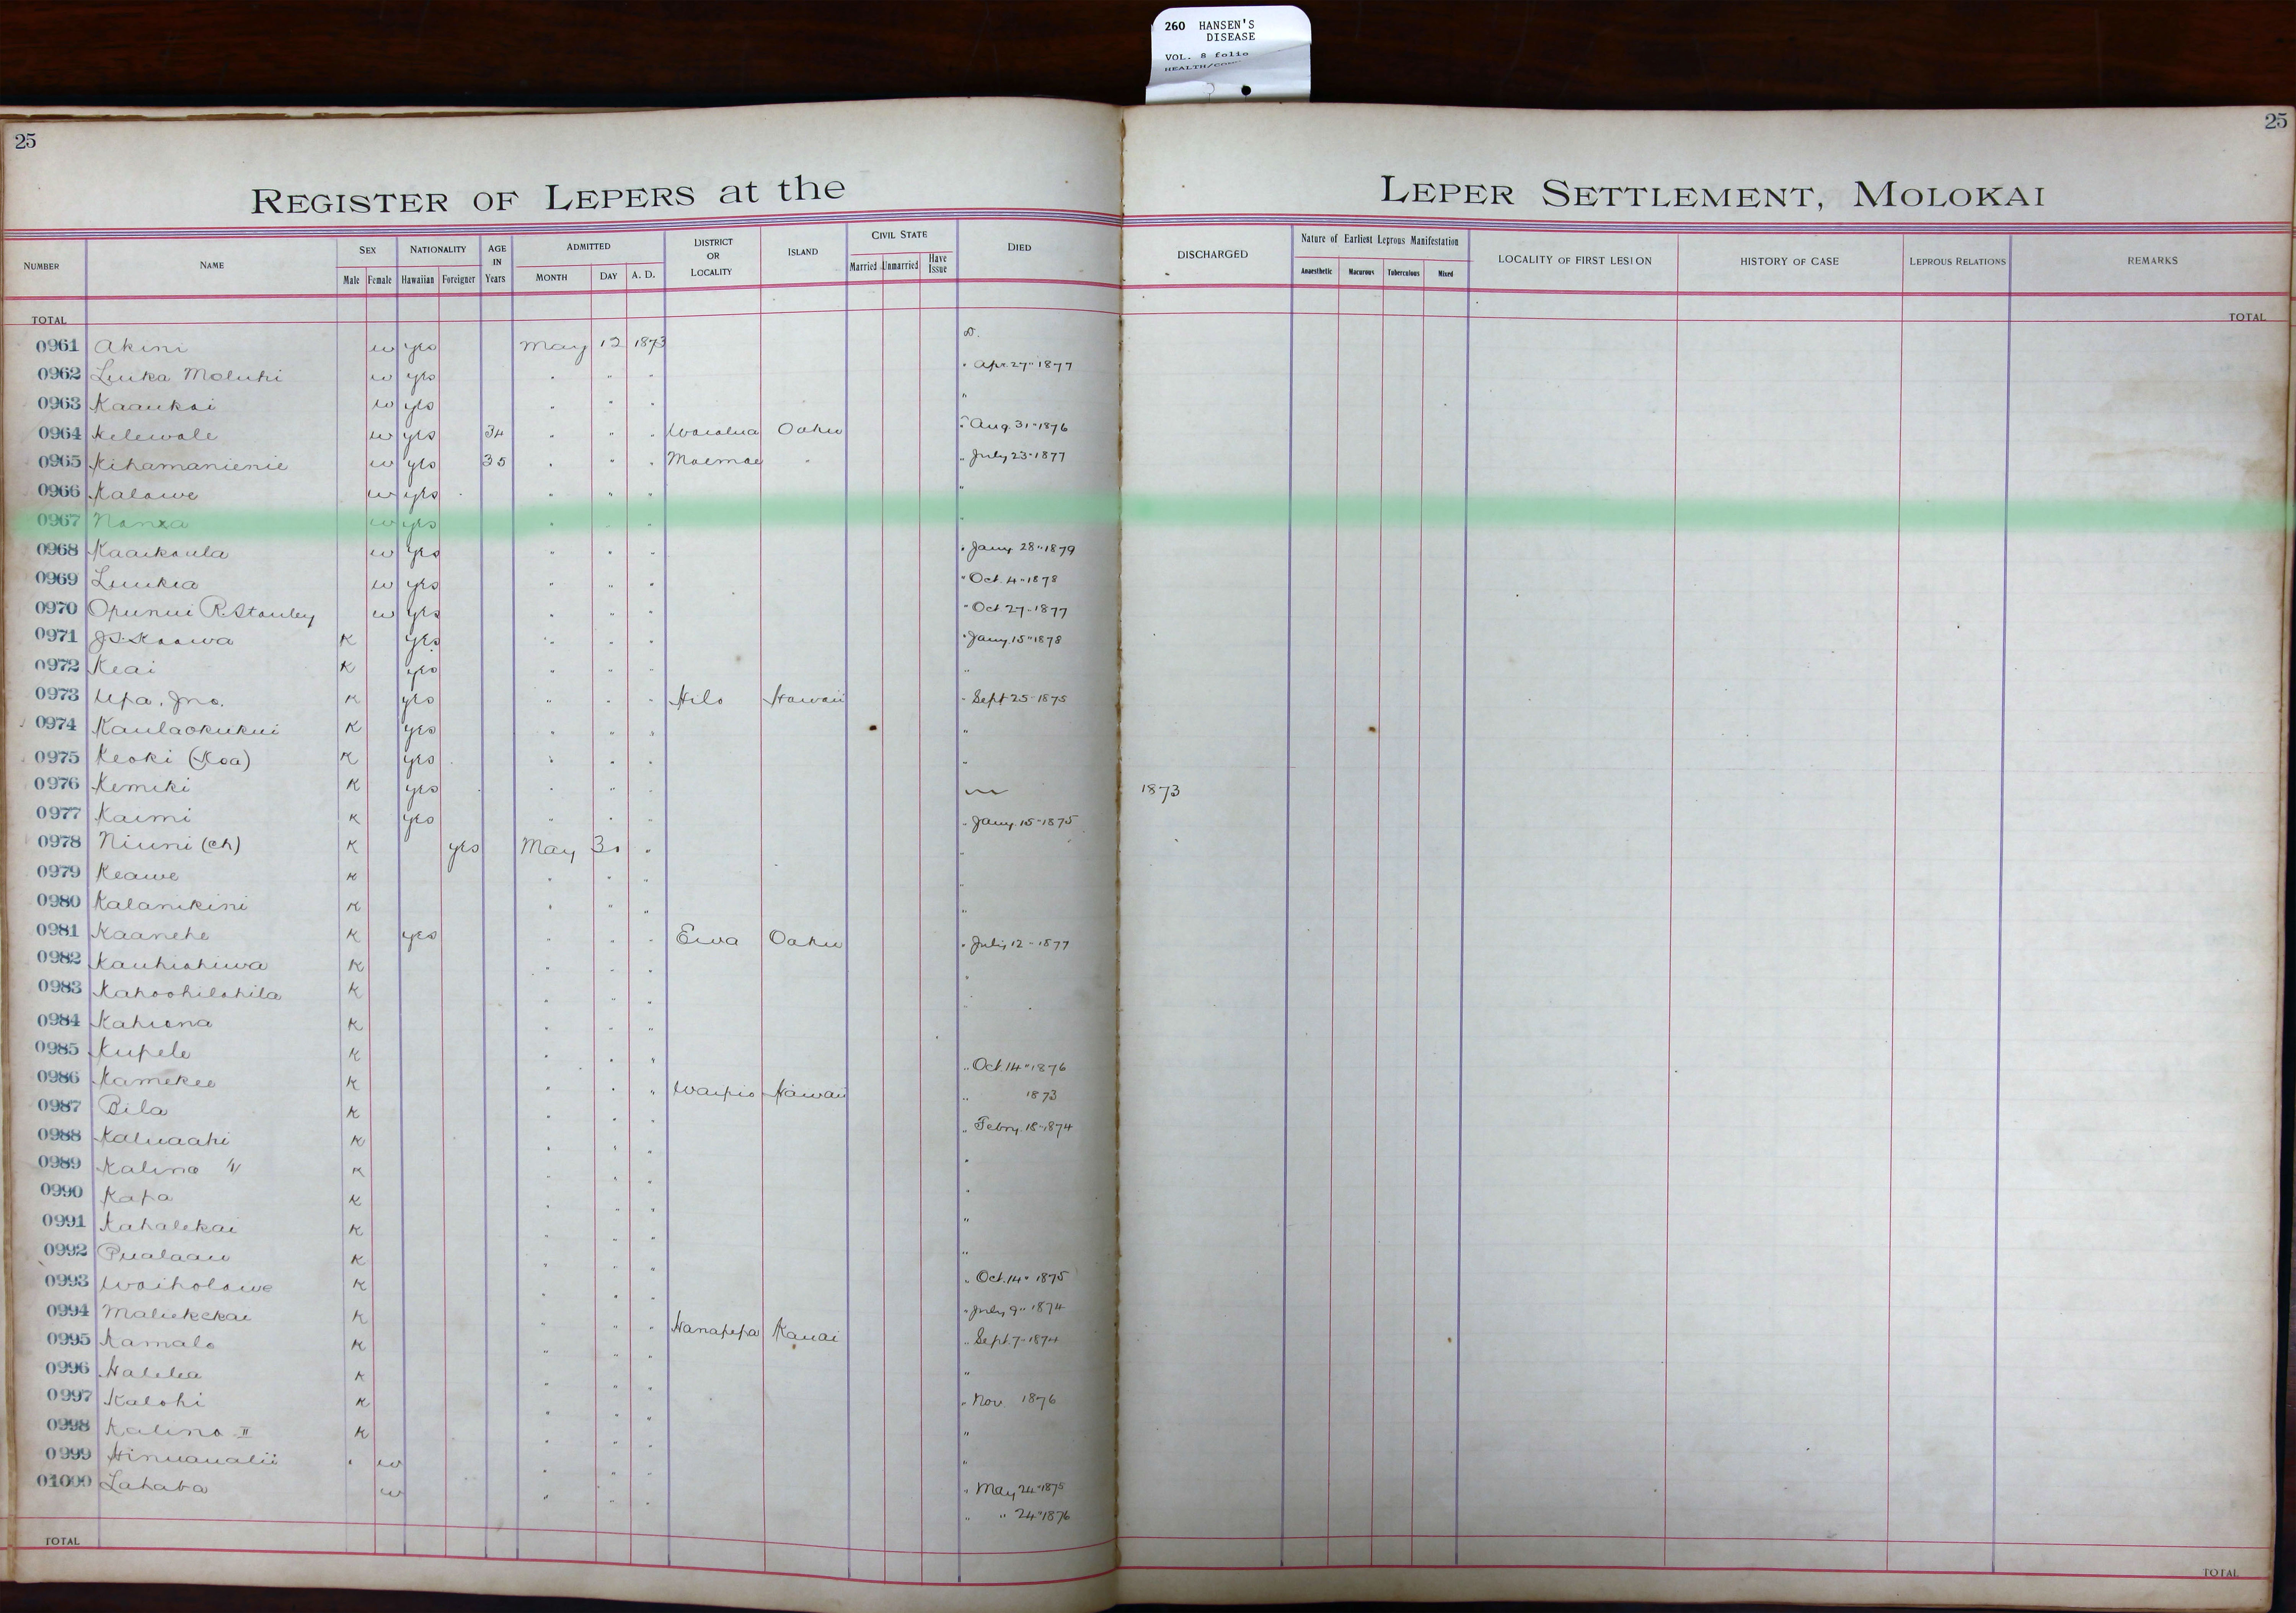 260 HANSEN'S
DISEASE
VOL. 8 folio
25
25
REGISTER OF LEPERS at the LEPER SETTLEMENT, MOLOKAI
NUMBER NAME SEX NATIONALITY AGE IN Years ADMITTED DISTRICT OR LOCALITY ISLAND CIVIL STATE DIED DISCHARGED Nature of Earliest Leprous Manifestation LOCALITY OF FIRST LESION HISTORY OF CASE LEPROUS RELATIONS REMARKS
Male Female Hawaiian Foreigner MONTH DAY A. D. Married Unmarried Have Issue Anaesthetic Macurous Tuberculous Mixed
TOTAL TOTAL
0961 Akini w yes May 12 1873 D.
0962 Luika Moluhi w yes " " " " Apr. 27" 1877
0963 Kaaukai w yes " " " "
0964 Kelewale w yes 34 " " " Waialua Oahu " Aug. 31" 1876
0965 Kihamanienie w yes 35 " " " Moemoe " " July 23" 1877
0966 Kalawe w yes " " " "
0967 w yes " " " "
0968 Kaaikaula w yes " " " " Jany 28" 1879
0969 Luukia w yes " " " " Oct. 4" 1878
0970 Opunui R. Stanley w yes " " " " Oct 27" 1877
0971 J.S. Kaawa K yes " " " " Jany. 15" 1878
0972 Keai K yes " " " "
0973 Upa. Jno. K yes " " " Hilo Hawaii " Sept 25" 1875
0974 Kaulaokukui K yes " " " "
0975 Keoki (Koa) K yes " " " "
0976 Kemiki K yes " " " 1873
0977 Kaimi K yes " " " " Jany. 15" 1875
0978 Niuni (ch) K yes May 30 " "
0979 Keawe K " " " "
0980 Kalanikini K " " " "
0981 Kaanehe K yes " " " Ewa Oahu " July 12" 1877
0982 Kauhiahiwa K " " " "
0983 Kahoohilahila K " " " "
0984 Kahiona K " " " "
0985 Kupele K " " " " Oct. 14" 1876
0986 Kamekeo K " " " Waipio Hawaii " 1873
0987 Bila K " " " " Febry. 18" 1874
0988 Kaluaahi K " " " "
0989 Kalino K " " " "
0990 Kapa K " " " "
0991 Kahalekai K " " " "
0992 Pualaau K " " " " Oct. 14" 1875
0993 Waiholowe K " " " " July 9" 1874
0994 Maliekekai K " " " Hanapepa Kauai " Sept. 7" 1874
0995 Kamalo K " " " "
0996 Halelea K " " " " Nov. 1876
0997 Kalohi K " " " "
0998 Kalino II K " " " "
0999 Hinuaualii w " " " " May 24" 1875
01000 Lahaba w " " " " " 24" 1876
TOTAL TOTAL